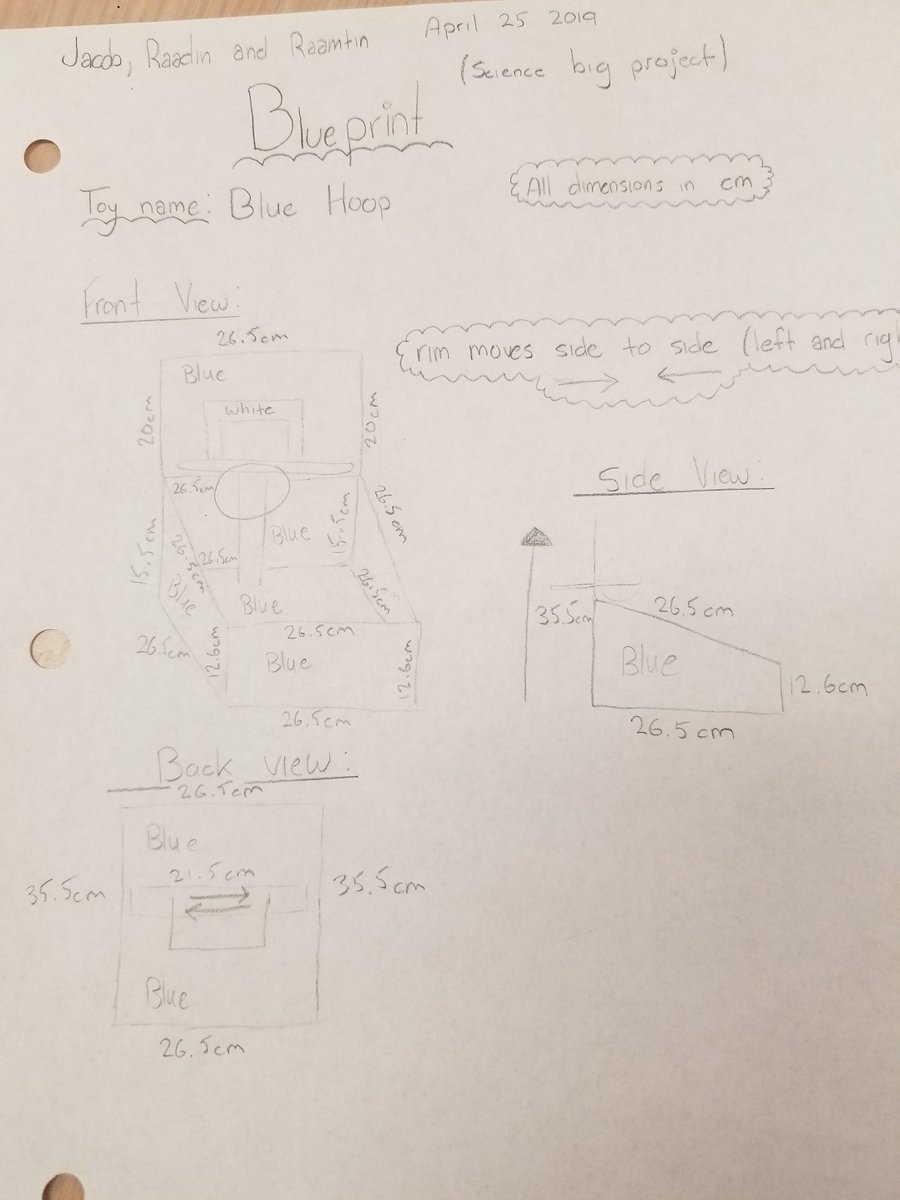 Jacob, Raadin and Raamtin
April 25 2019
(Science big project)
Blueprint
Toy name: Blue Hoop
All dimensions in cm
Front View:
rim moves side to side (left and
26.5cm
Blue
white
20cm
20cm
26.5cm
26.5cm
15.5cm
15.5cm
Blue
26.5cm
26.5cm
Blue
26.5cm
Blue
26.5cm
26.5cm
12.6cm
Blue
12.6cm
26.5cm
Side View:
35.5cm
26.5cm
Blue
12.6cm
26.5cm
Back view:
26.5cm
Blue
21.5cm
35.5cm
35.5cm
Blue
26.5cm